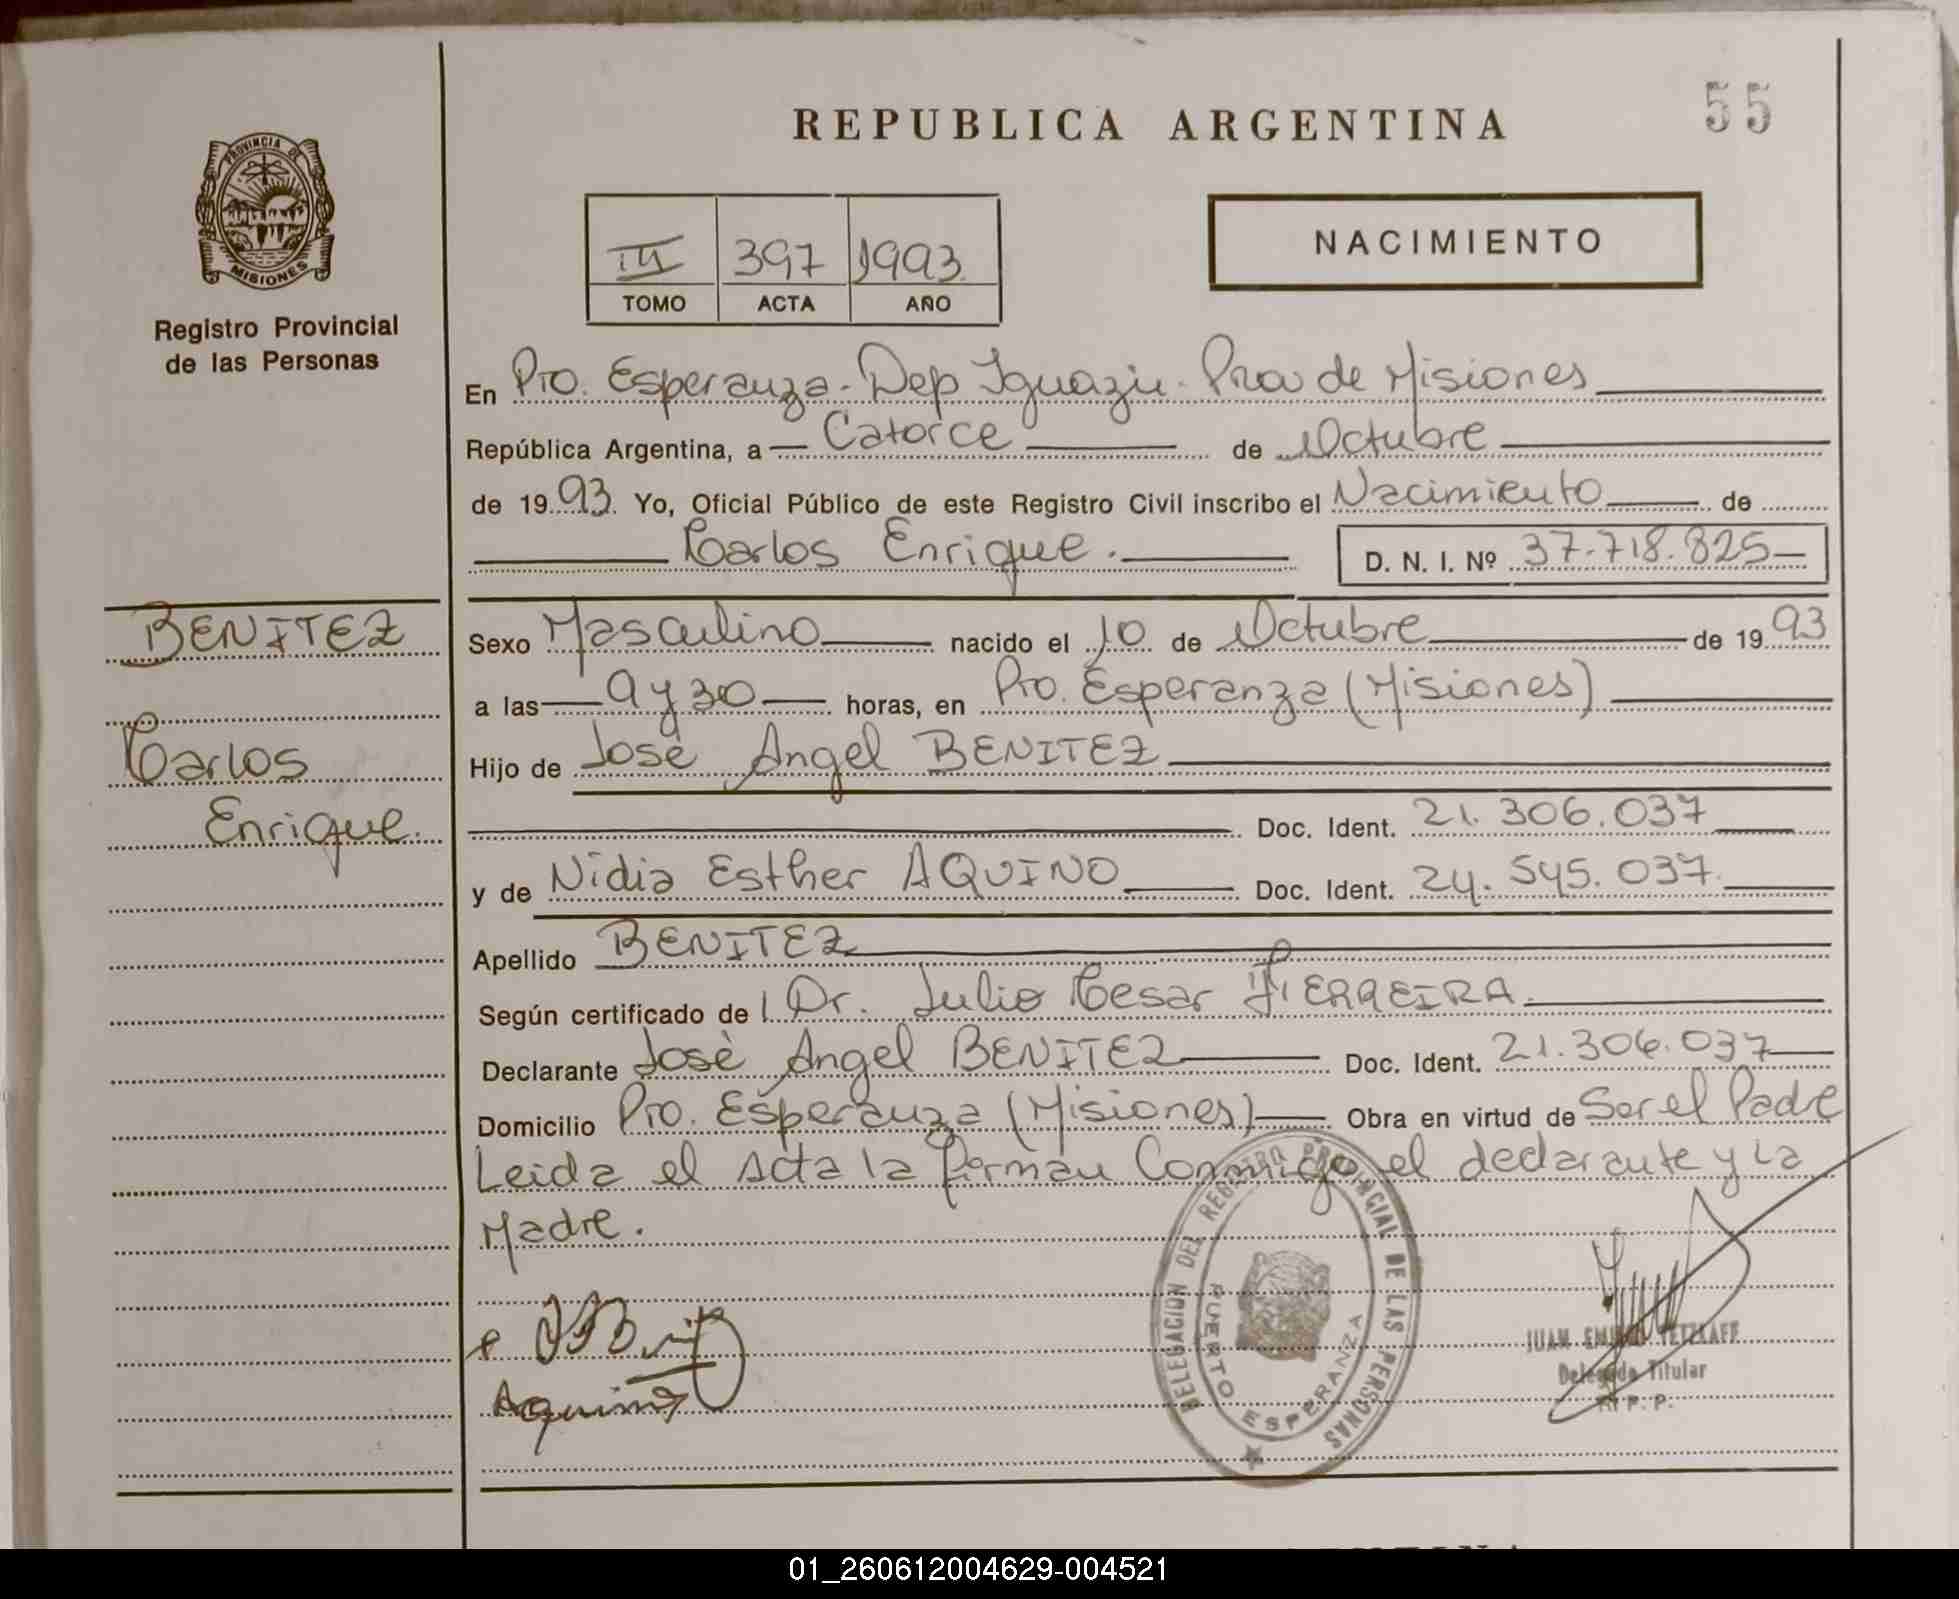 REPUBLICA ARGENTINA
55
PROVINCIA DE
MISIONES
Registro Provincial
de las Personas
III 397 1993
TOMO ACTA AÑO
NACIMIENTO
En Pto. Esperanza - Dep Iguazú - Prov de Misiones
República Argentina, a Catorce de Octubre
de 1993 Yo, Oficial Público de este Registro Civil inscribo el Nacimiento de
Carlos Enrique. D. N. I. Nº 37.718.825
BENITEZ
Carlos
Enrique.
Sexo Masculino nacido el 10 de Octubre de 1993
a las 9 y 30 horas, en Pto. Esperanza (Misiones)
Hijo de José Angel BENITEZ
Doc. Ident. 21.306.037
y de Nidia Esther AQUINO Doc. Ident. 24.545.037.
Apellido BENITEZ
Según certificado de Dr. Julio Cesar FIERREIRA.
Declarante José Angel BENITEZ Doc. Ident. 21.306.037
Domicilio Pto. Esperanza (Misiones) Obra en virtud de Ser el Padre
Leida el acta la firman Conmigo el declarante y La
Madre.
Aquino
DELEGACION DEL REGISTRO PROVINCIAL DE LAS PERSONAS
PUERTO ESPERANZA
JUAN TETZLAFF
Delegado Titular
R. P. P.
01_260612004629-004521